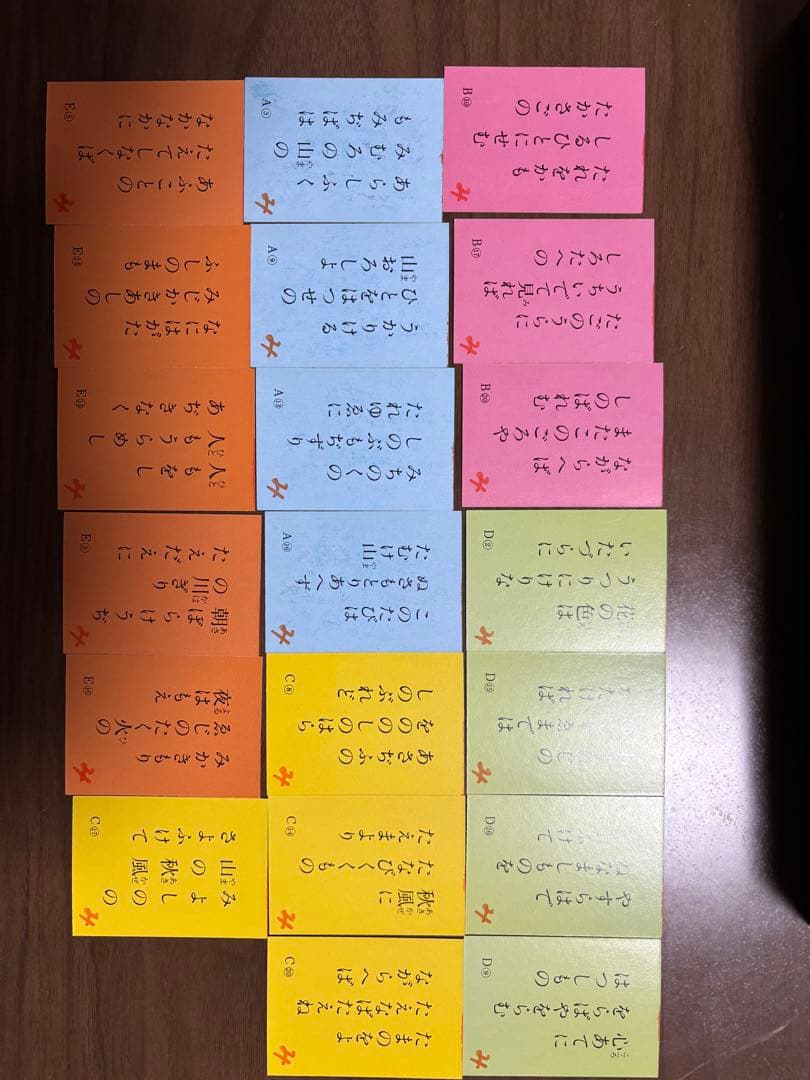 たれをかも
しるひとにせむ
たかさごの
B⑱
み
あらしふく
みむろの山の
もみぢばは
A③
み
あふことの
たえてしなくば
なかなかに
E⑤
み
たごのうらに
うちいでて見れば
しろたへの
B⑰
み
うかりける
ひとをはつせの
山おろしよ
A⑨
み
なにはがた
みじかきあしの
ふしのまも
E⑬
み
ながらへば
またこのごろや
しのばれむ
B⑳
み
みちのくの
しのぶもぢずり
たれゆゑに
A⑬
み
人もをし
人もうらめし
あぢきなく
E⑲
み
花の色は
うつりにけりな
いたづらに
D②
み
このたびは
ぬさもとりあへず
たむけ山
A⑯
み
朝ぼらけ うぢ
の川ぎり
たえだえに
E②
み
たければ
D⑮
み
あさぢふの
をののしのはら
しのぶれど
C⑧
み
みかきもり
ゑじのたく火の
夜はもえ
E⑩
み
やすらはで
ねなましものを
ふけて
D⑯
み
秋風に
たなびくくもの
たえまより
C⑭
み
みよしのの
山の秋風
さよふけて
C⑰
み
心あてに
をらばやをらむ
はつしもの
D⑨
み
たまのをよ
たえなばたえね
ながらへば
C⑳
み